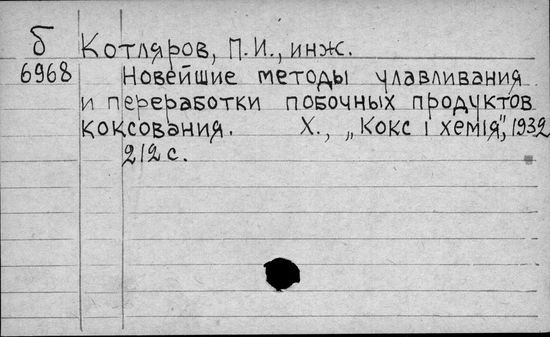 б Котляров, П.И., инж.
6968 Новейшие методы улавливания
и переработки побочных продуктов
коксования. Х., „Кокс і хемія", 1932
212 с.